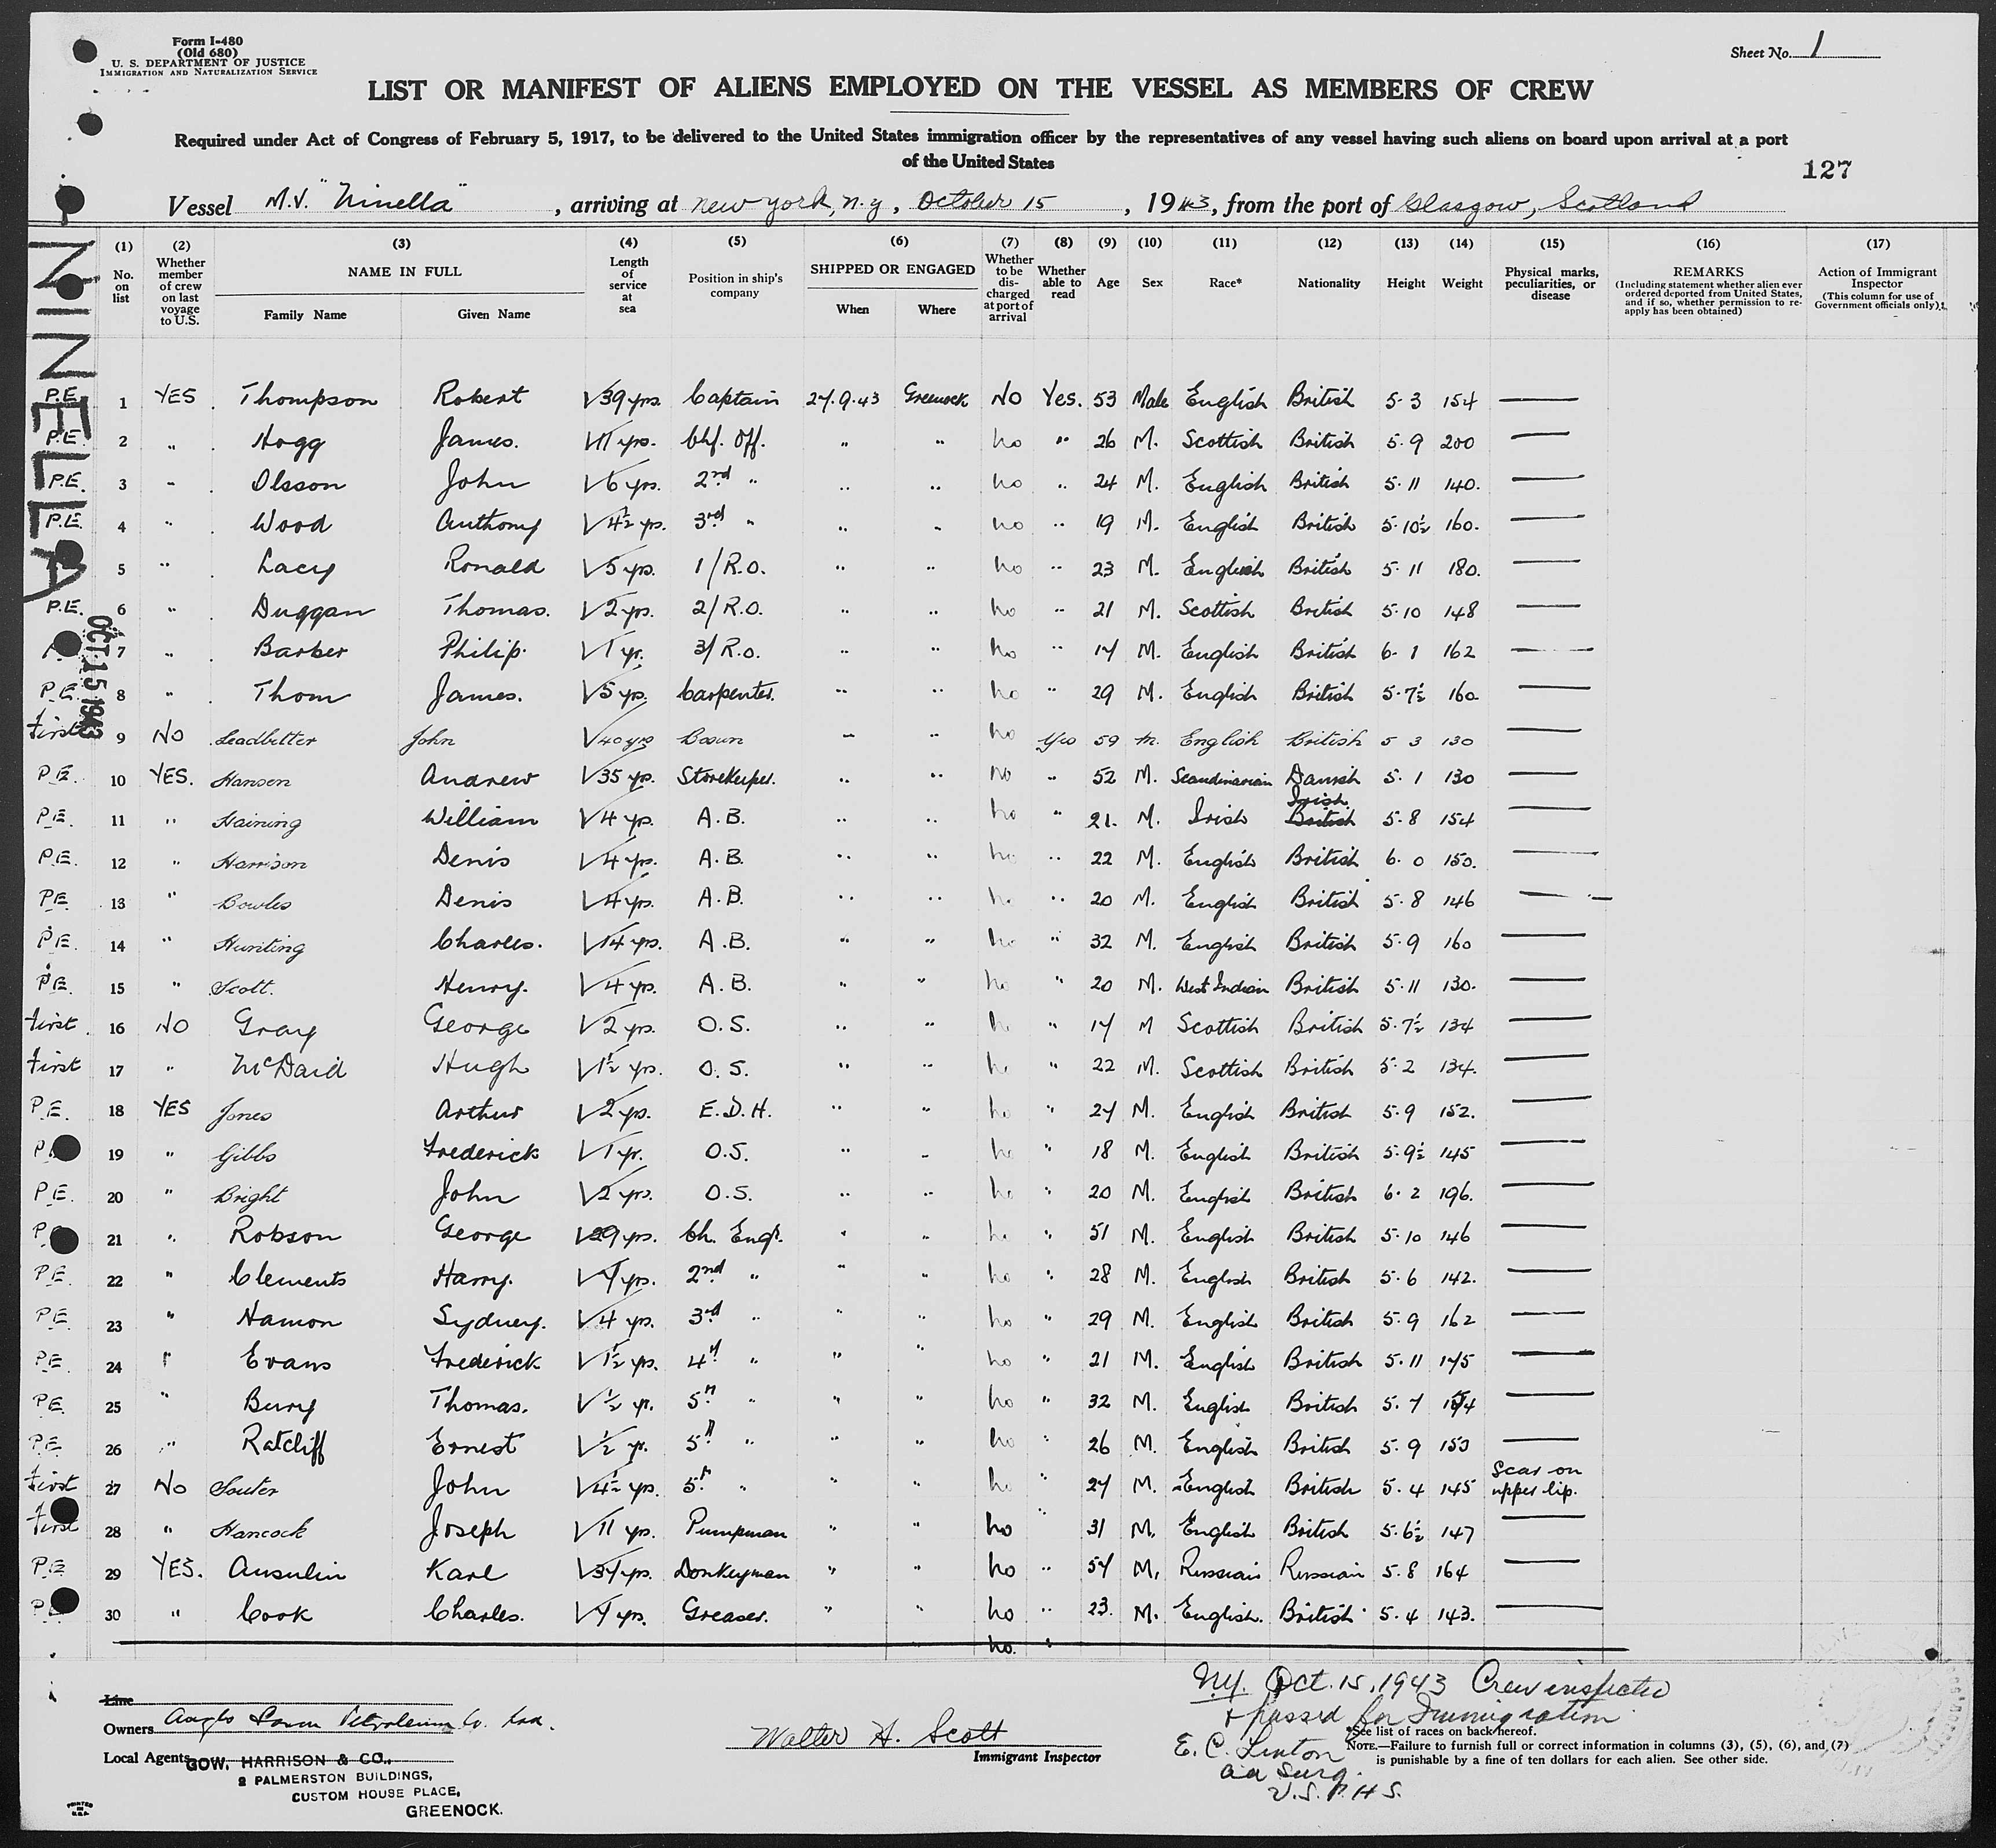 Form I-480
(Old 680)
U. S. DEPARTMENT OF JUSTICE
IMMIGRATION AND NATURALIZATION SERVICE
Sheet No. 1
LIST OR MANIFEST OF ALIENS EMPLOYED ON THE VESSEL AS MEMBERS OF CREW
Required under Act of Congress of February 5, 1917, to be delivered to the United States immigration officer by the representatives of any vessel having such aliens on board upon arrival at a port
of the United States
127
Vessel M.V. "Ninella", arriving at New York, N.Y., October 15, 1943, from the port of Glasgow, Scotland
NINELLA
OCT 15 1943
(1) No. on list (2) Whether member of crew on last voyage to U.S. (3) NAME IN FULL Family Name Given Name (4) Length of service at sea (5) Position in ship's company (6) SHIPPED OR ENGAGED When Where (7) Whether to be discharged at port of arrival (8) Whether able to read (9) Age (10) Sex (11) Race* (12) Nationality (13) Height (14) Weight (15) Physical marks, peculiarities, or disease (16) REMARKS (Including statement whether alien ever ordered deported from United States, and if so, whether permission to re-apply has been obtained) (17) Action of Immigrant Inspector (This column for use of Government officials only)
P.E. 1 YES Thompson Robert √39 yrs. Captain 27.9.43 Greenock No Yes. 53 Male English British 5·3 154 —
P.E. 2 " Hogg James. √11 yrs. Chf. Off. " " no " 26 M. Scottish British 5·9 200 —
P.E. 3 " Olsson John √6 yrs. 2nd " " " no " 24 M. English British 5·11 140. —
P.E. 4 " Wood Anthony √4½ yrs. 3rd " " " no " 19 M. English British 5·10½ 160. —
5 " Lacy Ronald √5 yrs. 1/R.O. " " no " 23 M. English British 5·11 180. —
P.E. 6 " Duggan Thomas. √2 yrs. 2/R.O. " " no " 21 M. Scottish British 5·10 148 —
7 " Barber Philip. √1 yr. 3/R.O. " " no " 17 M. English British 6·1 162 —
P.E. 8 " Thom James. √5 yrs. Carpenter. " " no " 29 M. English British 5·7½ 160 —
First 9 No Leadbitter John √40 yrs Bosun " " no Yes 59 m. English British 5 3 130
P.E. 10 YES. Hansen Andrew √35 yrs. Storekeeper. " " No " 52 M. Scandinavian Danish 5·1 130 —
P.E. 11 " Haining William √4 yrs. A.B. " " no " 21. M. Irish Irish British 5·8 154 —
P.E. 12 " Harrison Denis √4 yrs. A.B. " " no " 22 M. English British 6·0 150. —
P.E. 13 " Bowles Denis √4 yrs. A.B. " " no " 20 M. English British 5·8 146 —
P.E. 14 " Hunting Charles. √14 yrs. A.B. " " no " 32 M. English British 5·9 160 —
P.E. 15 " Scott. Henry. √4 yrs. A.B. " " no " 20 M. West Indian British 5·11 130. —
First 16 NO Gray George √2 yrs. O.S. " " no " 17 M Scottish British 5·7½ 134 —
First 17 " McDaid Hugh √1½ yrs. O.S. " " no " 22 M. Scottish British 5·2 134. —
P.E. 18 YES Jones Arthur √2 yrs. E.D.H. " " no " 27 M. English British 5·9 152. —
P 19 " Gibbs Frederick √1 yr. O.S. " " no " 18 M. English British 5·9½ 145 —
P.E. 20 " Bright John √2 yrs. O.S. " " no " 20 M. English British 6·2 196. —
P 21 " Robson George √29 yrs. Ch. Engr. " " no " 51 M. English British 5·10 146 —
P.E. 22 " Clements Harry. √7 yrs. 2nd " " " no " 28 M. English British 5·6 142. —
P.E. 23 " Hamon Sydney. √4 yrs. 3rd " " " no " 29 M. English British 5·9 162 —
P.E. 24 " Evans Frederick √1½ yrs. 4th " " " no " 21 M. English British 5·11 175 —
P.E. 25 " Burry Thomas. √½ yr. 5th " " " no " 32 M. English British 5·7 —
P.E. 26 " Ratcliff Ernest √½ yr. 5th " " " no " 26 M. English British 5·9 153 —
First 27 No Souter John √4½ yrs. 5th " " " no " 27 M. English British 5·4 145 Scar on upper lip.
First 28 " Hancock Joseph √11 yrs. Pumpman " " no " 31 M. English British 5·6½ 147 —
P.E. 29 YES. Ausulin Karl √37 yrs. Donkeyman " " no " 57 M. Russian Russian 5·8 164 —
P 30 " Cook Charles. √7 yrs. Greaser. " " no " 23. M. English. British 5·4 143. —
no. "
Line
Owners Anglo Saxon Petroleum Co. Ltd.
Local Agents GOW, HARRISON & CO.,
2 PALMERSTON BUILDINGS,
CUSTOM HOUSE PLACE,
GREENOCK.
Walter H. Scott
Immigrant Inspector
N.Y. Oct. 15, 1943 Crew inspected
& passed for Immigration
E. C. Linton
aa Surg.
U.S.P.H.S.
*See list of races on back hereof.
NOTE.—Failure to furnish full or correct information in columns (3), (5), (6), and (7)
is punishable by a fine of ten dollars for each alien. See other side.
PRINTED IN U.S.A.